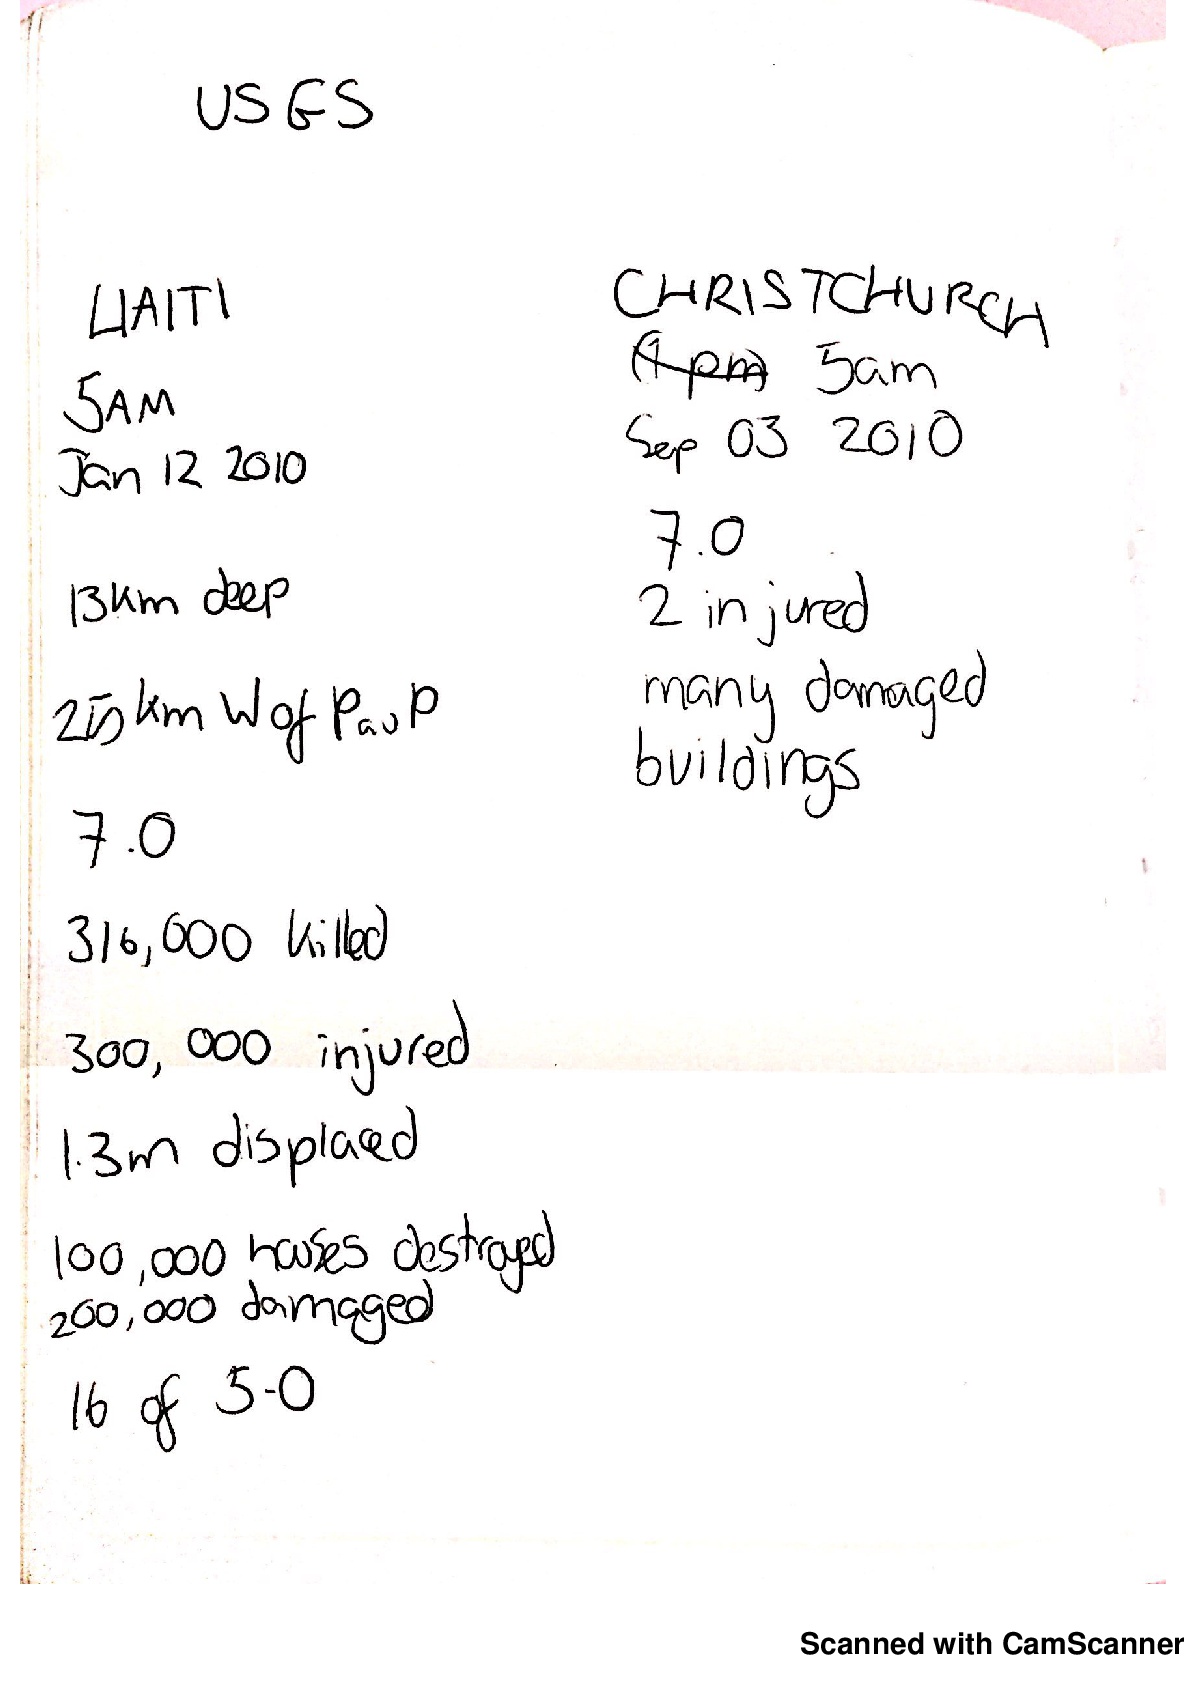 USGS
HAITI
5AM
Jan 12 2010
13km deep
25 km W of P au P
7.0
316,000 killed
300,000 injured
1.3m displaced
100,000 houses destroyed
200,000 damaged
16 of 5.0
CHRISTCHURCH
(1pm) 5am
Sep 03 2010
7.0
2 injured
many damaged
buildings
Scanned with CamScanner